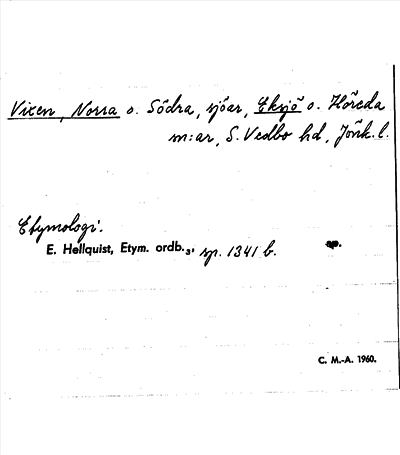 Vixen, Norra o. Södra, sjöar, Eksjö o. Höreda
m:ar, S. Vedbo hd, Jönk. l.
Etymologi.
E. Hellquist, Etym. ordb.₃, sp. 1341 b.
C. M.-A. 1960.